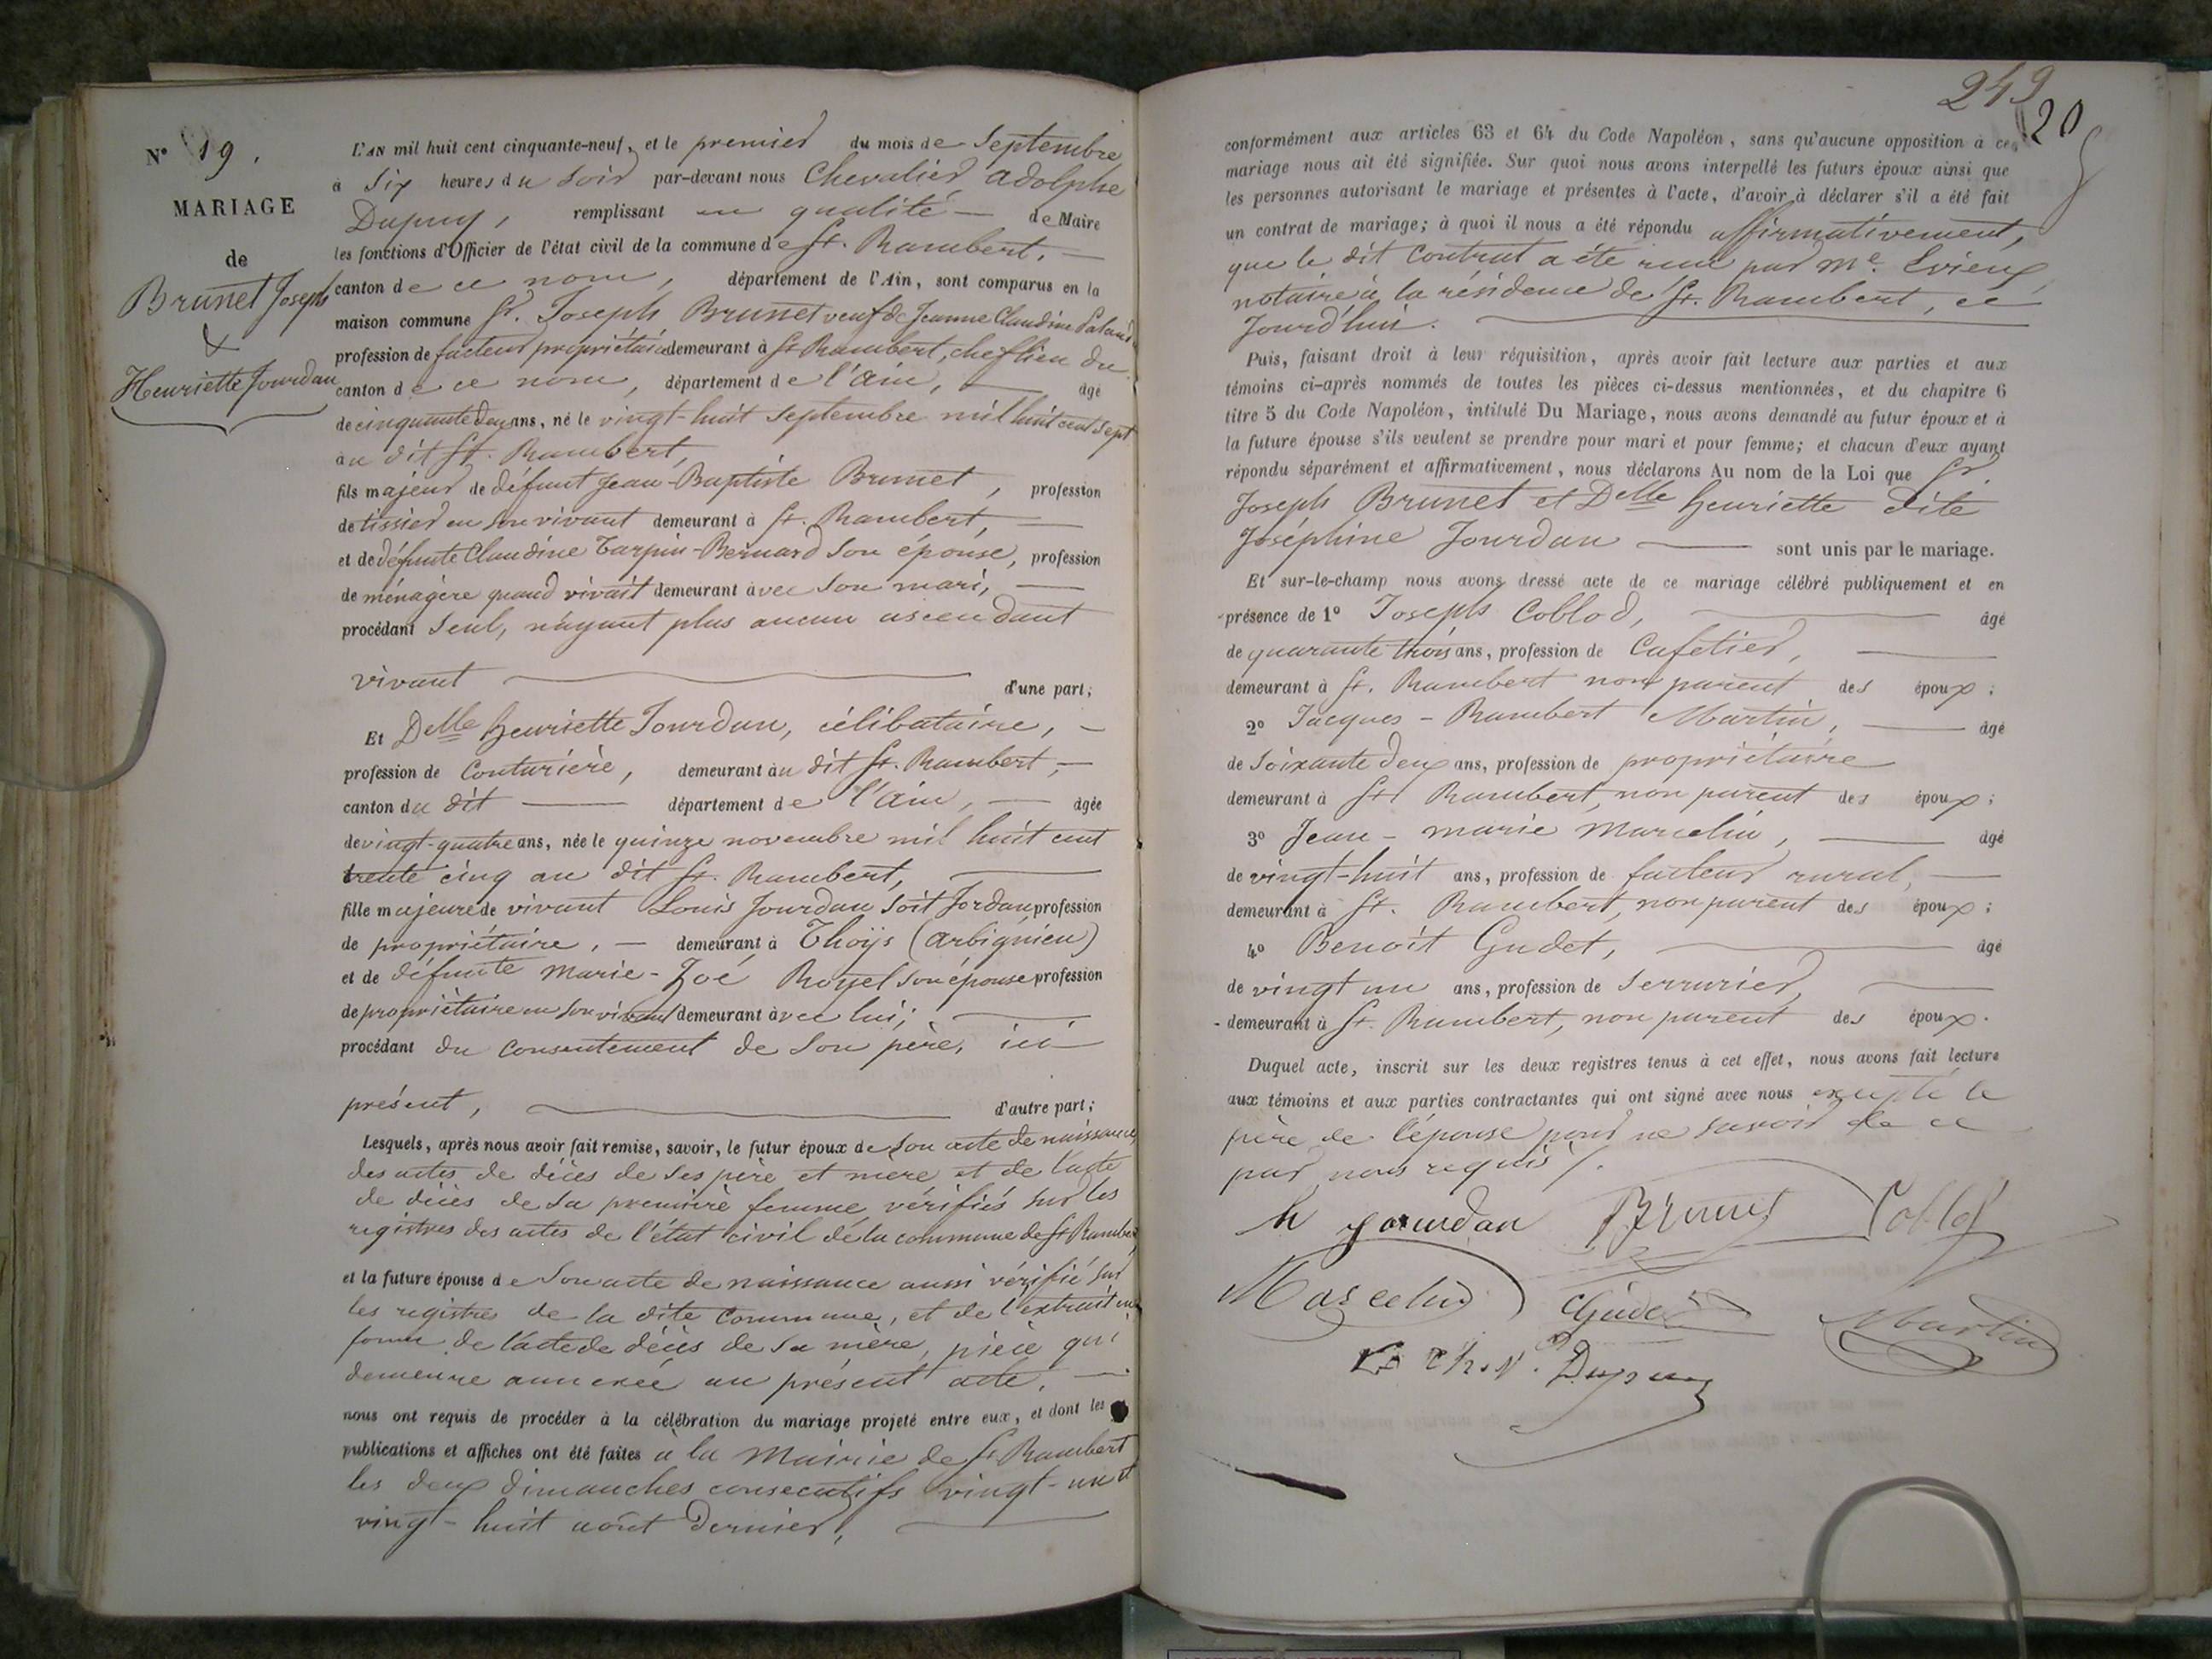 N° 19.
MARIAGE
de
Brunet Joseph
&
Henriette Jourdan
L'AN mil huit cent cinquante-neuf, et le premier du mois de Septembre
à Six heures du soir par-devant nous Chevalier Adolphe
Dupuy, remplissant en qualité — de Maire
les fonctions d'Officier de l'état civil de la commune de St. Rambert, —
canton de ce nom, département de l'Ain, sont comparus en la
maison commune Sr. Joseph Brunet veuf de Jeanne Claudine
profession de facteur propriétaire demeurant à St Rambert, chef lieu du
canton de ce nom, département de l'Ain, — âgé
de cinquante deux ans, né le vingt-huit Septembre mil huit cent sept
au dit St. Rambert,
fils majeur de défunt Jean-Baptiste Brunet, profession
de tissier en son vivant demeurant à St. Rambert, —
et de défunte Claudine Tarpin-Bernard son épouse, profession
de ménagère quand vivait demeurant avec son mari, —
procédant Seul, n'ayant plus aucun ascendant
vivant — d'une part;
Et Delle henriette Jourdan, célibataire, —
profession de Couturière, demeurant au dit St. Rambert, —
canton du dit — département de l'Ain, — âgée
de vingt-quatre ans, née le quinze novembre mil huit cent
trente cinq au dit St. Rambert, —
fille majeure de vivant Louis Jourdan soit Jordan profession
de propriétaire, — demeurant à Thoÿs (Arbignieu)
et de défunte Marie-Zoé Royel son épouse profession
de propriétaire en son vivant demeurant avec lui; —
procédant du consentement de son père, ici
présent, — d'autre part;
Lesquels, après nous avoir fait remise, savoir, le futur époux de son acte de naissance,
des actes de décès de ses père et mère, et de l'acte
de décès de sa première femme, vérifiés sur les
registres des actes de l'état civil de la commune de St Rambert
et la future épouse de Son acte de naissance aussi vérifié sur
les registres de la dite commune, et de l'extrait en
forme de l'acte de décès de sa mère, pièce qui
demeure annexée au présent acte. —
nous ont requis de procéder à la célébration du mariage projeté entre eux, et dont les
publications et affiches ont été faites à la Mairie de St Rambert
les deux dimanches consecutifs vingt-un et
vingt-huit août dernier, —
249
20
conformément aux articles 63 et 64 du Code Napoléon, sans qu'aucune opposition à ce
mariage nous ait été signifiée. Sur quoi nous avons interpellé les futurs époux ainsi que
les personnes autorisant le mariage et présentes à l'acte, d'avoir à déclarer s'il a été fait
un contrat de mariage; à quoi il nous a été répondu affirmativement,
que le dit contrat a été reçu par Me. Evieux
notaire à la résidence de St. Rambert, ce
Jourd'hui. —
Puis, faisant droit à leur réquisition, après avoir fait lecture aux parties et aux
témoins ci-après nommés de toutes les pièces ci-dessus mentionnées, et du chapitre 6
titre 5 du Code Napoléon, intitulé Du Mariage, nous avons demandé au futur époux et à
la future épouse s'ils veulent se prendre pour mari et pour femme; et chacun d'eux ayant
répondu séparément et affirmativement, nous déclarons Au nom de la Loi que Sr.
Joseph Brunet et Delle henriette dite
Joséphine Jourdan — sont unis par le mariage.
Et sur-le-champ nous avons dressé acte de ce mariage célébré publiquement et en
présence de 1° Joseph Coblod, — âgé
de quarante trois ans, profession de Cafetier, —
demeurant à St. Rambert non parent des époux;
2° Jacques-Rambert Martin, — âgé
de soixante deux ans, profession de propriétaire
demeurant à St Rambert, non parent des époux;
3° Jean-marie Marcelin, — âgé
de vingt-huit ans, profession de facteur rural, —
demeurant à St. Rambert, non parent des époux;
4° Benoit Gudet, — âgé
de vingt un ans, profession de Serrurier, —
demeurant à St. Rambert, non parent des époux.
Duquel acte, inscrit sur les deux registres tenus à cet effet, nous avons fait lecture
aux témoins et aux parties contractantes qui ont signé avec nous excepté le
père de l'épouse pour ne savoir de ce
par nous requis /.
h jourdan Brunet Coblod
Marcelin Gudet Martin
Le Ch. A. Dupuy